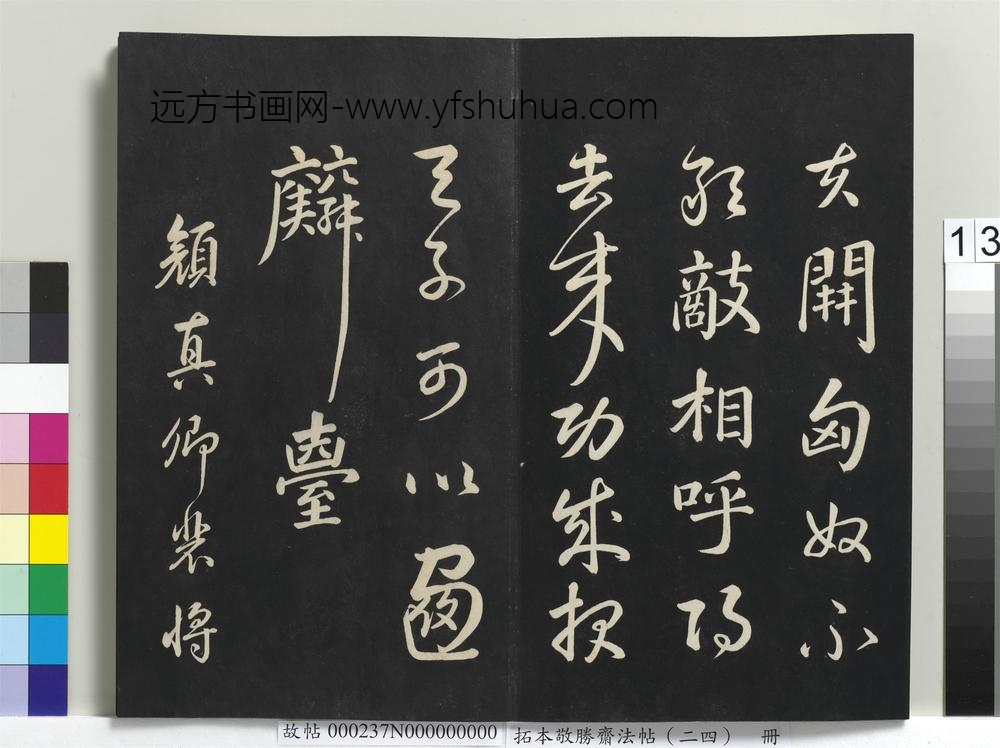 远方书画网-www.yfshuhua.com
夫開匈奴不
敢敵相呼歸
去來功成報
天子可以畫
麟臺
顏真卿裴將
13
故帖 000237N000000000
拓本敬勝齋法帖（二四） 冊